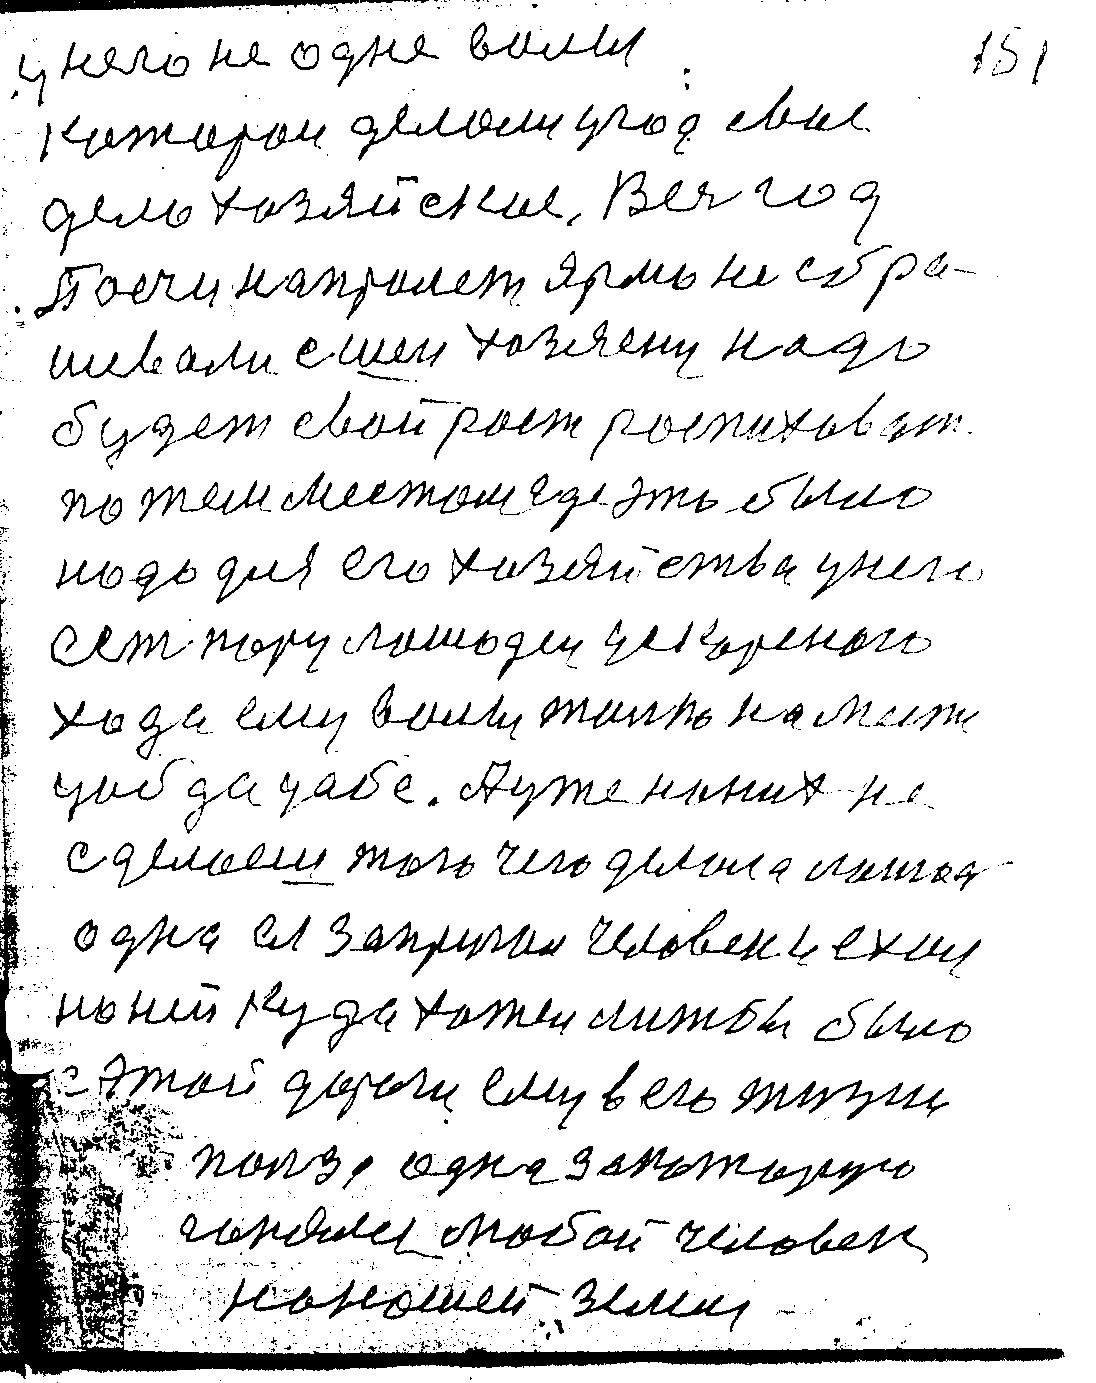 у него не одне волы 151
которои делали угод свое
дело хозяйское, Вех год
Поечи напролет Ярмо не сбра-
шевали с шеи хозяену надо
будет свой рост роспиховат
по тем местом где это было
надо для его хозяйства у него
ест пору лошодеи ускореного
хода ему волы толко на мест
цоб да цабе. А уже на них не
сделоеш того чего делала лошод
одна ея запрягал человек и ехал
на ней куда хотел лиж бы было
с этой дороги ему в его жизни
полза одна за которую
гонялся любой человек
на нашей земли